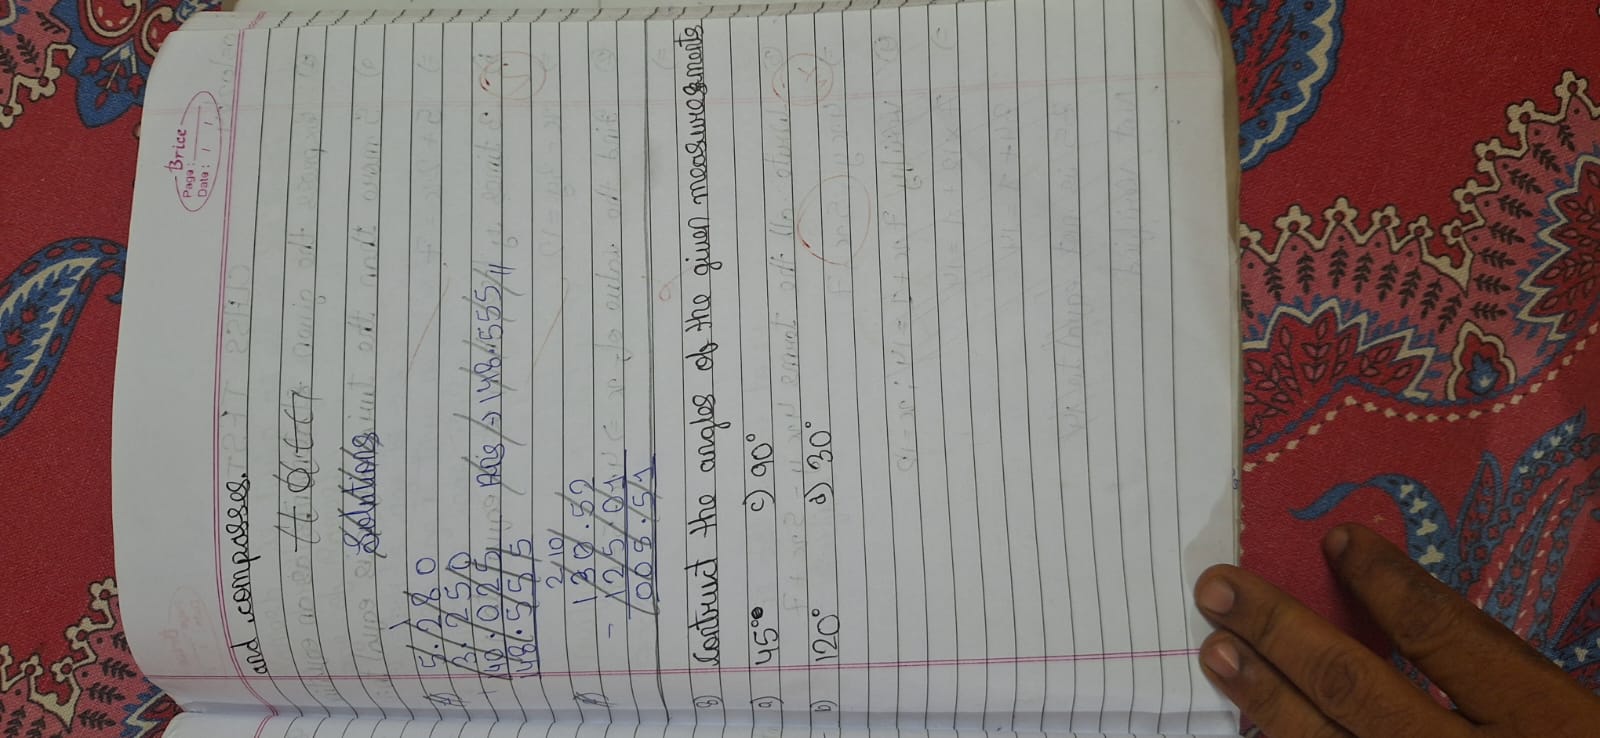 Brice
Page:
Date: / /
and compasses.
Solutions
A) 5.280
3.250
+ 140.025 Ans → 148.555
148.555
210
B) 130.52
- 125.01
008.51
8) Contruct the angles of the given measuresments
a) 45° c) 90°
b) 120° d) 30°